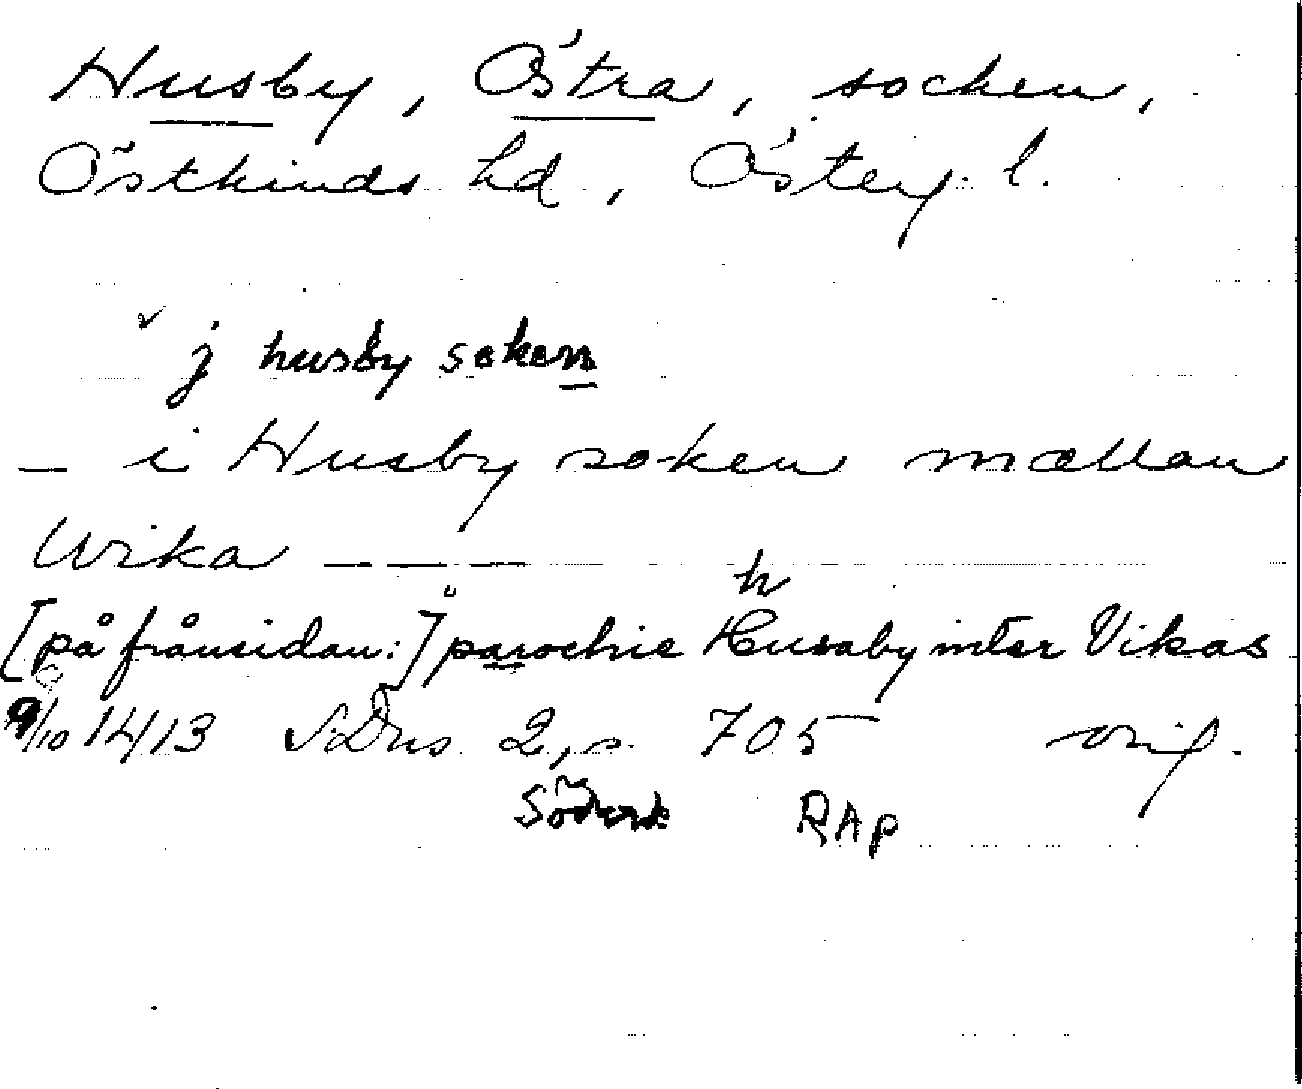 Husby, Östra, socken,
Östkinds hd, Österg. l.
j husby soken
– i Husby soken mællan
Wika – – –
h
[på frånsidan:] parochie Husaby inter Vikas
9/10 1413 SDns 2, s. 705 orig.
RAp